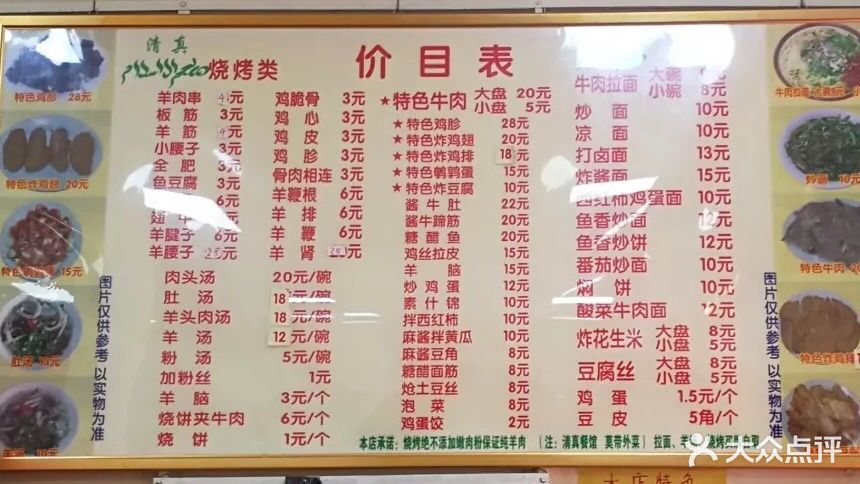 清真
烧烤类
价目表
羊肉串 4元
板筋 3元
羊筋 4元
小腰子 3元
全肥 3元
鱼豆腐 3元
翅中 6元
羊腱子 6元
羊腰子 25元
鸡脆骨 3元
鸡心 3元
鸡皮 3元
鸡胗 3元
骨肉相连 3元
羊鞭根 6元
羊排 6元
羊鞭 6元
羊肾 25元
肉头汤 20元/碗
肚汤 18元/碗
羊头肉汤 18元/碗
羊汤 12元/碗
粉汤 5元/碗
加粉丝 1元
羊脑 3元/个
烧饼夹牛肉 6元/个
烧饼 1元/个
★特色牛肉 大盘 20元
小盘 5元
★特色鸡胗 28元
★特色炸鸡翅 20元
★特色炸鸡排 18元
★特色鹌鹑蛋 15元
★特色炸豆腐 10元
酱牛肚 22元
酱牛蹄筋 20元
糖醋鱼 20元
鸡丝拉皮 15元
羊脑 15元
炒鸡蛋 12元
素什锦 10元
拌西红柿 10元
麻酱拌黄瓜 10元
麻酱豆角 8元
糖醋面筋 8元
炝土豆丝 8元
泡菜 8元
鸡蛋饺 2元
牛肉拉面 大碗 9元
小碗 8元
炒面 10元
凉面 10元
打卤面 13元
炸酱面 10元
西红柿鸡蛋面 10元
鱼香炒面 12元
鱼香炒饼 12元
番茄炒面 10元
焖饼 10元
酸菜牛肉面 12元
炸花生米 大盘 8元
小盘 5元
豆腐丝 大盘 8元
小盘 5元
鸡蛋 1.5元/个
豆皮 5角/个
本店承诺：烧烤绝不添加嫩肉粉保证纯羊肉 （注：清真餐馆 莫带外菜）
图片仅供参考 以实物为准
图片仅供参考 以实物为准
特色鸡胗 28元
特色炸鸡翅 20元
15元
肚汤 18元
牛肉拉面 大碗9元
炒面 10元
特色牛肉
特色炸鸡排
大众点评
本店特色